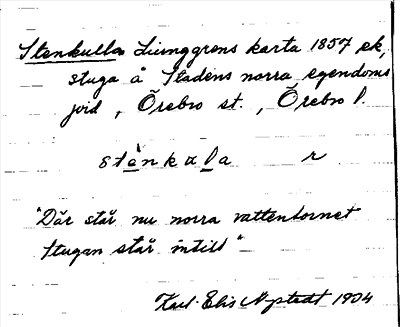 Stenkulla Ljunggrens karta 1857 ek,
stuga å Stadens norra egendoms
jord, Örebro st., Örebro l.
stènkala r
"Där står nu norra vattentornet
Stugan står intill"
Karl-Elis Nystedt 1904